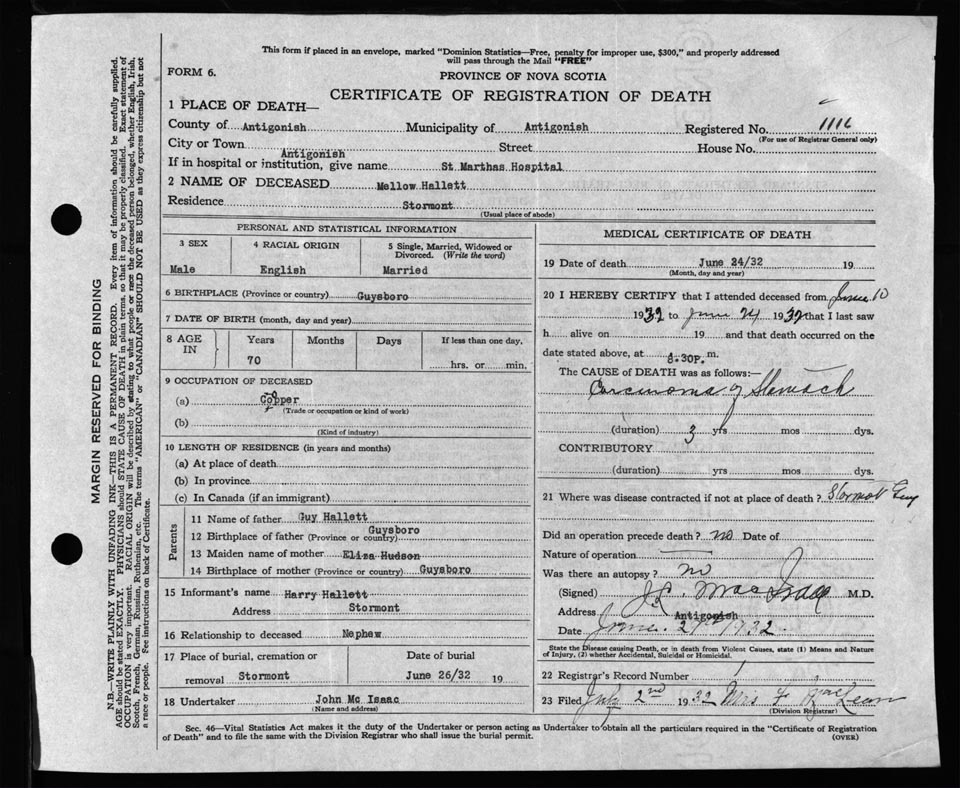 This form if placed in an envelope, marked "Dominion Statistics—Free, penalty for improper use, $300," and properly addressed
will pass through the Mail "FREE"
FORM 6.
PROVINCE OF NOVA SCOTIA
CERTIFICATE OF REGISTRATION OF DEATH
1 PLACE OF DEATH—
County of Antigonish Municipality of Antigonish Registered No. 1116
(For use of Registrar General only)
City or Town Antigonish Street House No.
If in hospital or institution, give name St Marthas Hospital
2 NAME OF DECEASED Mellow Hallett
Residence Stormont
(Usual place of abode)
PERSONAL AND STATISTICAL INFORMATION
3 SEX 4 RACIAL ORIGIN 5 Single, Married, Widowed or
Divorced. (Write the word)
Male English Married
6 BIRTHPLACE (Province or country) Guysboro
7 DATE OF BIRTH (month, day and year)
8 AGE IN Years Months Days If less than one day,
70 hrs. or min.
9 OCCUPATION OF DECEASED
(a) Cooper
(Trade or occupation or kind of work)
(b)
(Kind of industry)
10 LENGTH OF RESIDENCE (in years and months)
(a) At place of death
(b) In province
(c) In Canada (if an immigrant)
Parents
11 Name of father Guy Hallett
12 Birthplace of father (Province or country) Guysboro
13 Maiden name of mother Eliza Hudson
14 Birthplace of mother (Province or country) Guysboro
15 Informant's name Harry Hallett
Address Stormont
16 Relationship to deceased Nephew
17 Place of burial, cremation or Date of burial
removal Stormont June 26/32 19
18 Undertaker John Mc Isaac
(Name and address)
MEDICAL CERTIFICATE OF DEATH
19 Date of death June 24/32 19
(Month, day and year)
20 I HEREBY CERTIFY that I attended deceased from June 10
1932 to June 24 1932 that I last saw
h alive on 19 and that death occurred on the
date stated above, at 8.30P. m.
The CAUSE of DEATH was as follows:—
Carcinoma of Stomach
(duration) 3 yrs mos dys.
CONTRIBUTORY
(duration) yrs mos dys.
21 Where was disease contracted if not at place of death? Stormont Guy
Did an operation precede death? no Date of
Nature of operation
Was there an autopsy? no
(Signed) MacIsaac M.D.
Address Antigonish
Date June 1932
State the Disease causing Death, or in death from Violent Causes, state (1) Means and Nature
of Injury, (2) whether Accidental, Suicidal or Homicidal.
22 Registrar's Record Number
23 Filed July 2nd 1932 Mrs F MacLean
(Division Registrar)
Sec. 46—Vital Statistics Act makes it the duty of the Undertaker or person acting as Undertaker to obtain all the particulars required in the "Certificate of Registration
of Death" and to file the same with the Division Registrar who shall issue the burial permit. (OVER)
MARGIN RESERVED FOR BINDING
N.B—WRITE PLAINLY WITH UNFADING INK—THIS IS A PERMANENT RECORD. Every item of information should be carefully supplied.
AGE should be stated EXACTLY. PHYSICIANS should STATE CAUSE OF DEATH in plain terms, so that it may be properly classified. Exact statement of
OCCUPATION is very important. RACIAL ORIGIN will be described by stating to what people or race the deceased person belonged, whether English, Irish,
Scotch, French, German, Russian, Ruthenian, etc. The terms "AMERICAN" or "CANADIAN" SHOULD NOT BE USED as they express citizenship but not
a race or people. See instructions on back of Certificate.